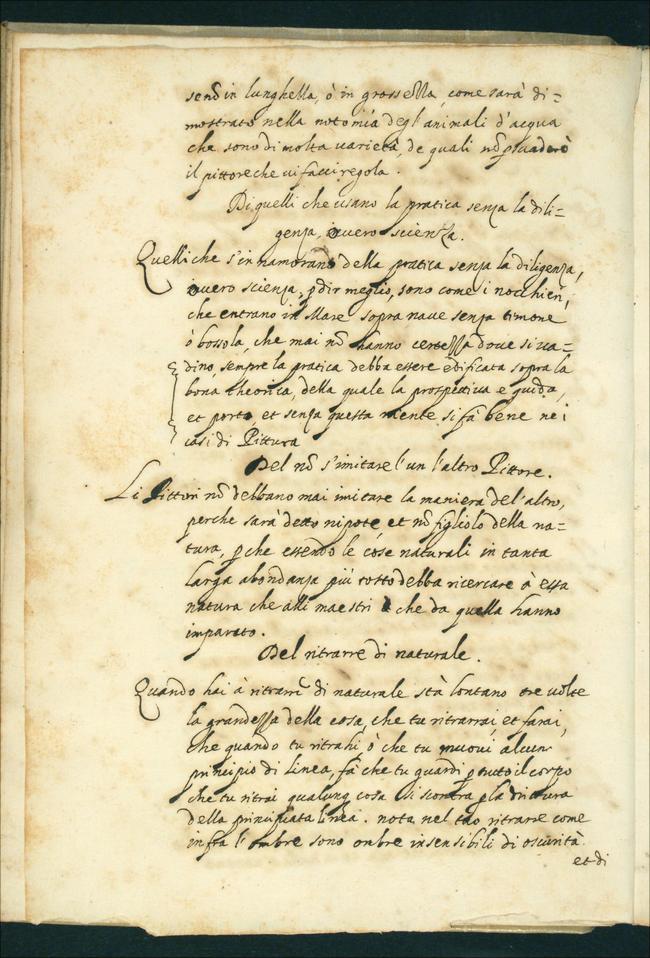 send in lunghella, ò in grossella, come sarà di=
mostrato nella notomia degl'animali d'acqua
che sono di molta varietà, de quali nō
il pittore che vi facci regola.
Di quelli che usano la pratica senza la dili=
genza, overo scienza.
Quelli che s'innamorano della pratica senza la diligenza,
overo scienza, p dir meglio, sono come i nocchieri,
che entrano in Mare sopra nave senza timone
ò bossola, che mai nō hanno certezza dove si va=
dino, sempre la pratica debba essere edificata sopra la
bona theorica, della quale la prospettiva e guida,
et porta, et senza questa niente si fà bene ne i
casi di Pittura
Del nō s'imitare l'un l'altro Pittore.
Li Pittori nō debbano mai imitare la maniera del'altro,
perche sarà detto nipote, et nō figliolo della na=
tura, p che essendo le cose naturali in tanta
larga abondanza più tosto debba ricercare à essa
natura che alli maestri che da quella hanno
imparato.
Del ritrarre di naturale.
Quando hai à ritrarre di naturale stà lontano tre volte
la grandezza della cosa, che tu ritrarrai, et farai,
che quando tu ritrahi, ò che tu muovi alcun
principio di linea, fà che tu guardi p tutto il corpo
che tu ritrai qualunq cosa si scontra p la drittura
della principiata linea. nota nel tuo ritrarre come
infra l'ombre sono ombre insensibili di oscurità
et di